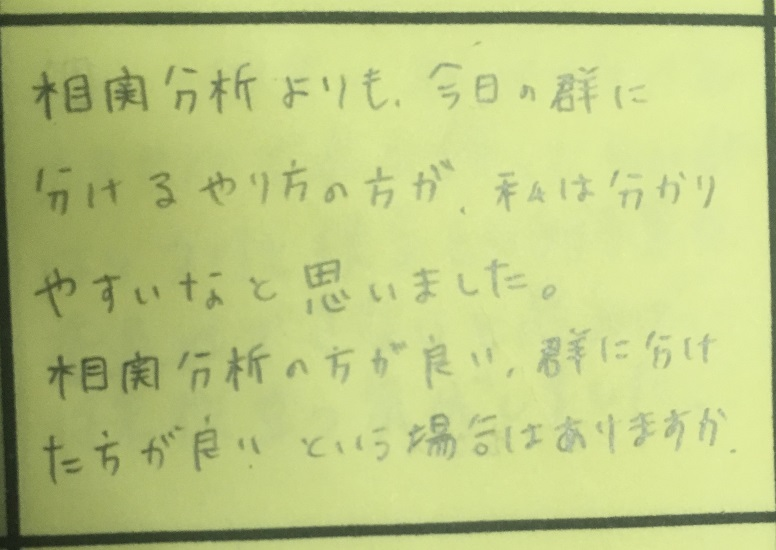 相関分析よりも、今日の群に
分けるやり方の方が、私は分かり
やすいなと思いました。
相関分析の方が良い、群に分け
た方が良いという場合はありますか.